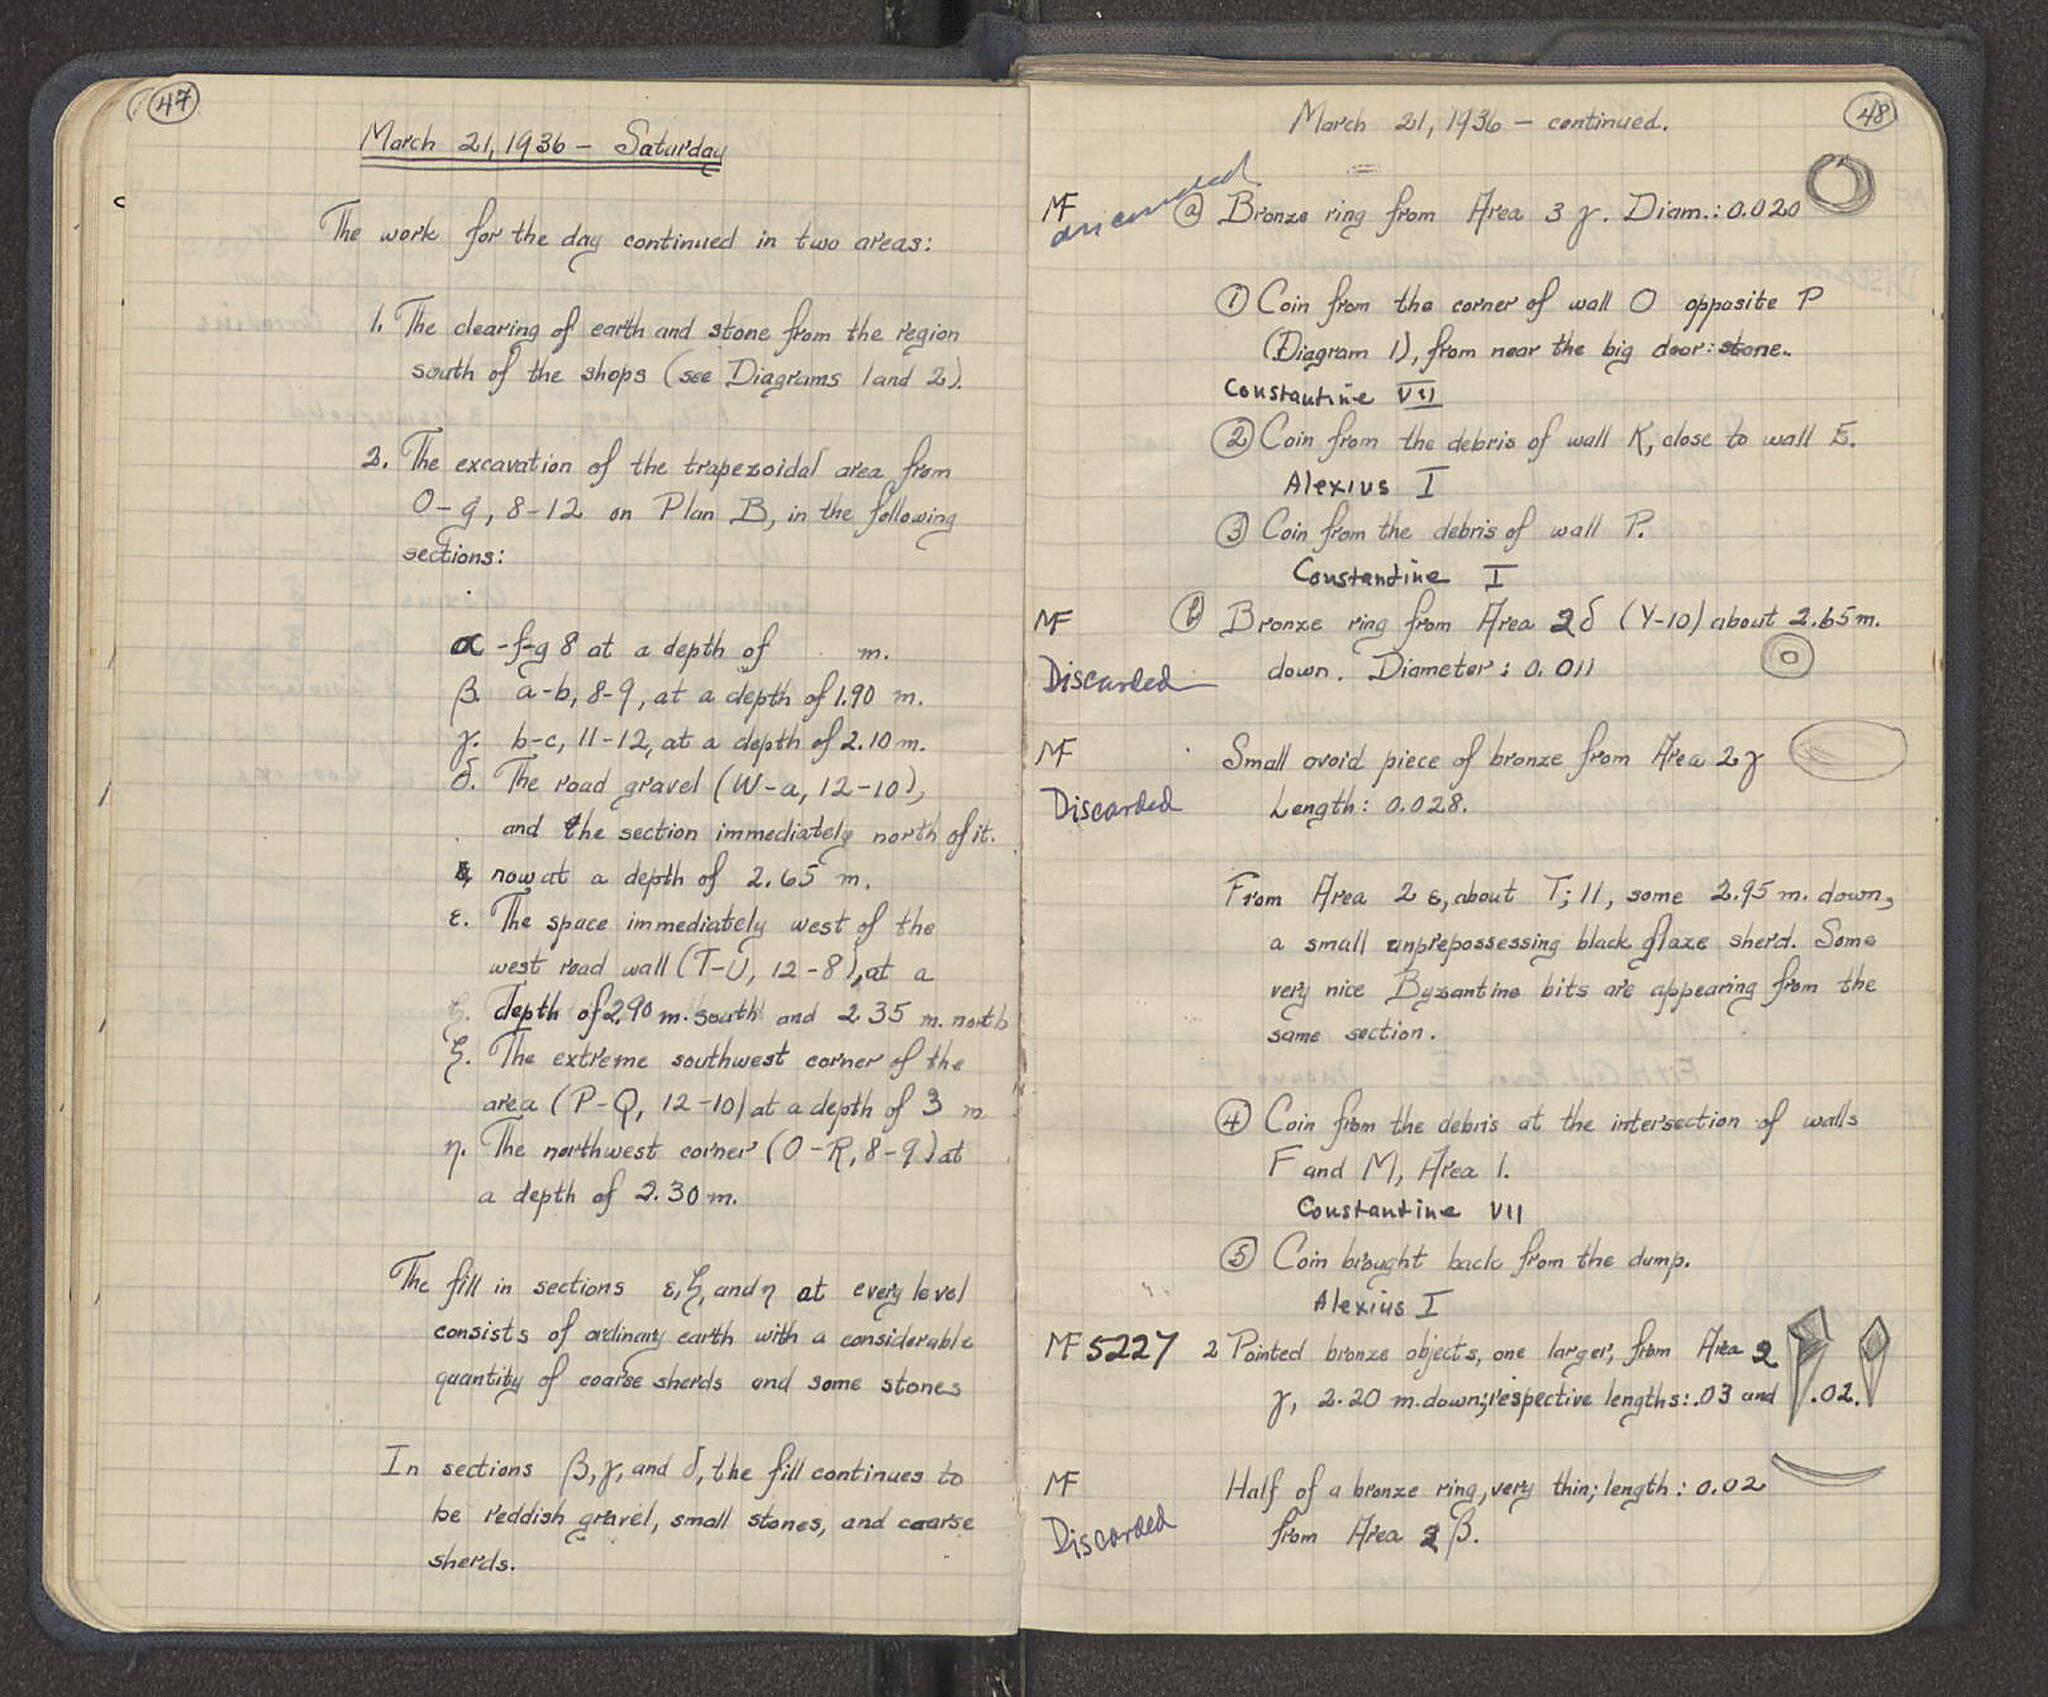 47
March 21, 1936 – Saturday
The work for the day continued in two areas:
1. The clearing of earth and stone from the region
south of the shops (see Diagrams 1 and 2).
2. The excavation of the trapezoidal area from
O-g, 8-12 on Plan B, in the following
sections:
α - f-g 8 at a depth of m.
β. a-b, 8-9, at a depth of 1.90 m.
γ. b-c, 11-12, at a depth of 2.10 m.
δ. The road gravel (W-a, 12-10),
and the section immediately north of it.
now at a depth of 2.65 m.
ε. The space immediately west of the
west road wall (T-U, 12-8), at a
depth of 2.90 m. south and 2.35 m. north
ζ. The extreme southwest corner of the
area (P-Q, 12-10) at a depth of 3 m
η. The northwest corner (O-R, 8-9) at
a depth of 2.30 m.
The fill in sections ε, ζ, and η at every level
consists of ordinary earth with a considerable
quantity of coarse sherds and some stones
In sections β, γ, and δ, the fill continues to
be reddish gravel, small stones, and coarse
sherds.
48
March 21, 1936 – continued.
MF ⓐ Bronze ring from Area 3 γ. Diam.: 0.020
① Coin from the corner of wall O opposite P
(Diagram 1), from near the big door: stone.
Constantine VII
② Coin from the debris of wall K, close to wall E.
Alexius I
③ Coin from the debris of wall P.
Constantine I
MF ⓑ Bronze ring from Area 2δ (Y-10) about 2.65 m.
Discarded down. Diameter: 0.011
MF Small ovoid piece of bronze from Area 2γ
Discarded Length: 0.028.
From Area 2 ε, about T; 11, some 2.95 m. down,
a small unprepossessing black glaze sherd. Some
very nice Byzantine bits are appearing from the
same section.
④ Coin from the debris at the intersection of walls
F and M, Area 1.
Constantine VII
⑤ Coin brought back from the dump.
Alexius I
MF 5227 2 Pointed bronze objects, one larger, from Area 2
γ, 2.20 m. down; respective lengths: .03 and .02.
MF Half of a bronze ring, very thin; length: 0.02
Discarded from Area 2 β.